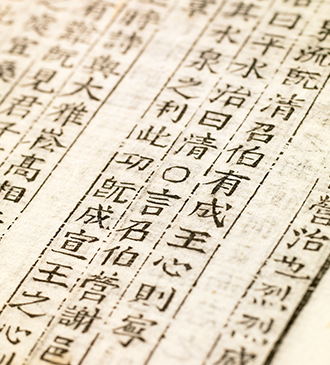 營治也烈烈威
流既清召伯有成王心則寧
曰平水治曰清○言召伯營謝邑
其水泉之利此功既成宣王之心則
時詩與大雅崧高相
既見君子